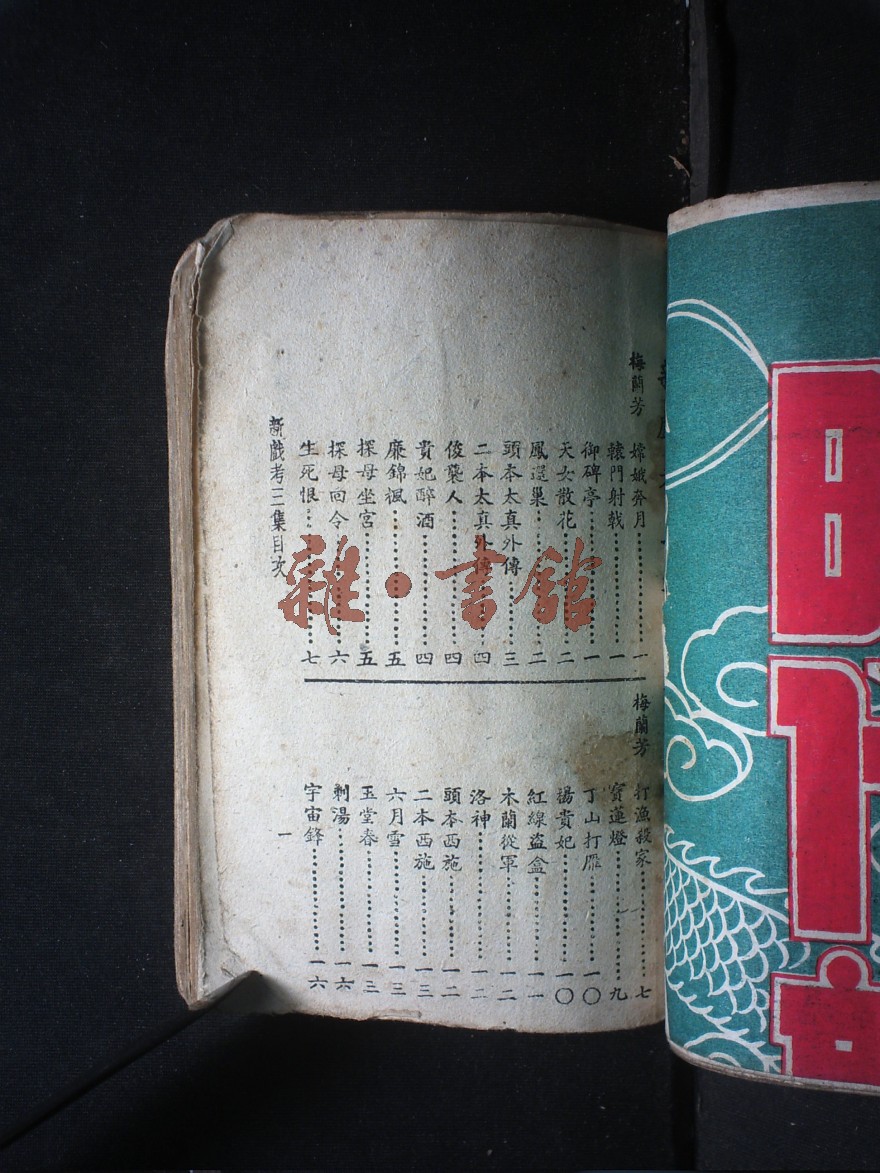 梅蘭芳
嫦娥奔月 一
轅門射戟 一
御碑亭 一
天女散花 二
鳳還巢 二
頭本太真外傳 三
二本太真外傳 四
俊襲人 四
貴妃醉酒 四
廉錦楓 五
探母坐宮 五
探母回令 六
生死恨 七
梅蘭芳
打漁殺家 七
寶蓮燈 九
丁山打雁 一〇
楊貴妃 一〇
紅線盜盒 一一
木蘭從軍 一二
洛神 一二
頭本西施 一二
二本西施 一三
六月雪 一三
玉堂春 一三
刺湯 一六
宇宙鋒 一六
新戲考三集目次
一
雜·書館